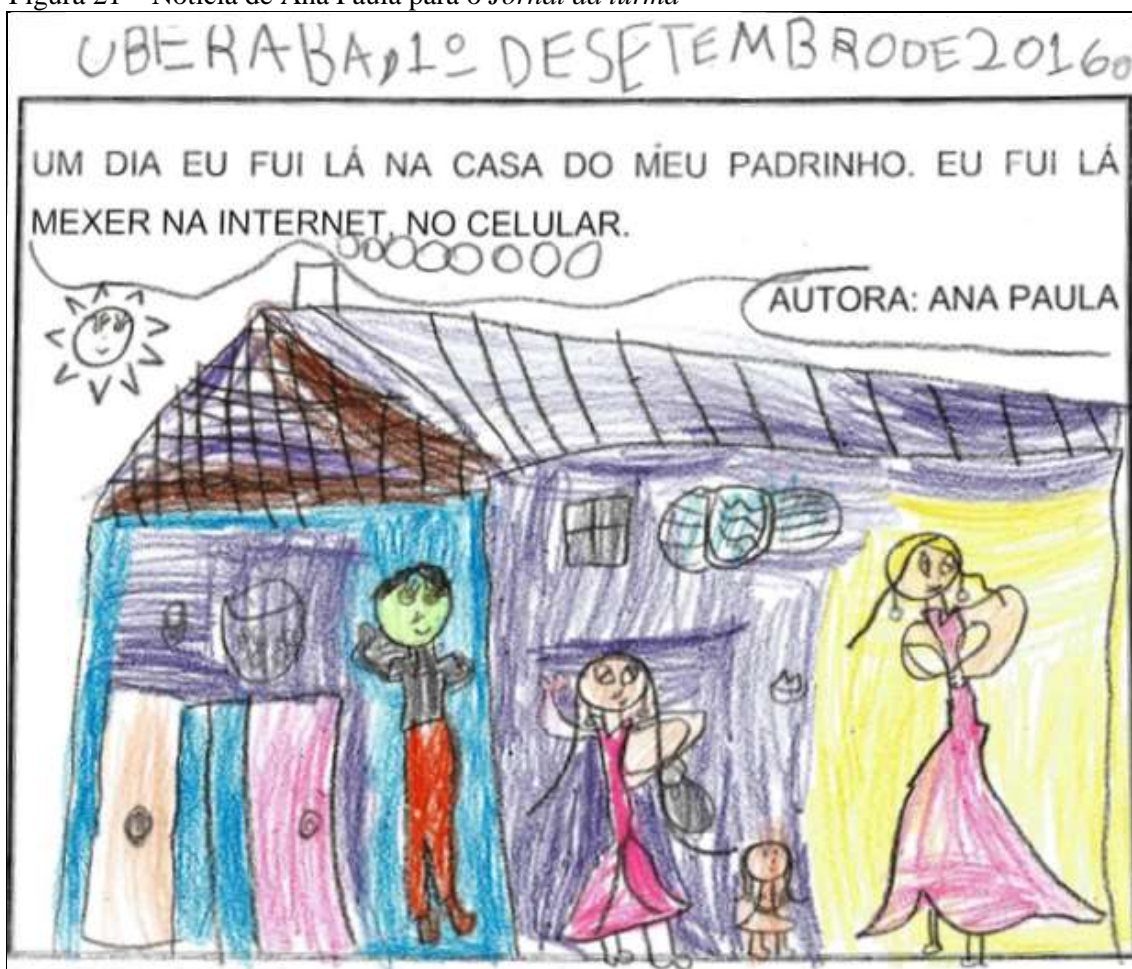 Figura 21 – Notícia de Ana Paula para o Jornal da turma
UBERABA, 1º DE SETEMBRO DE 2016.
UM DIA EU FUI LÁ NA CASA DO MEU PADRINHO. EU FUI LÁ
MEXER NA INTERNET, NO CELULAR.
AUTORA: ANA PAULA